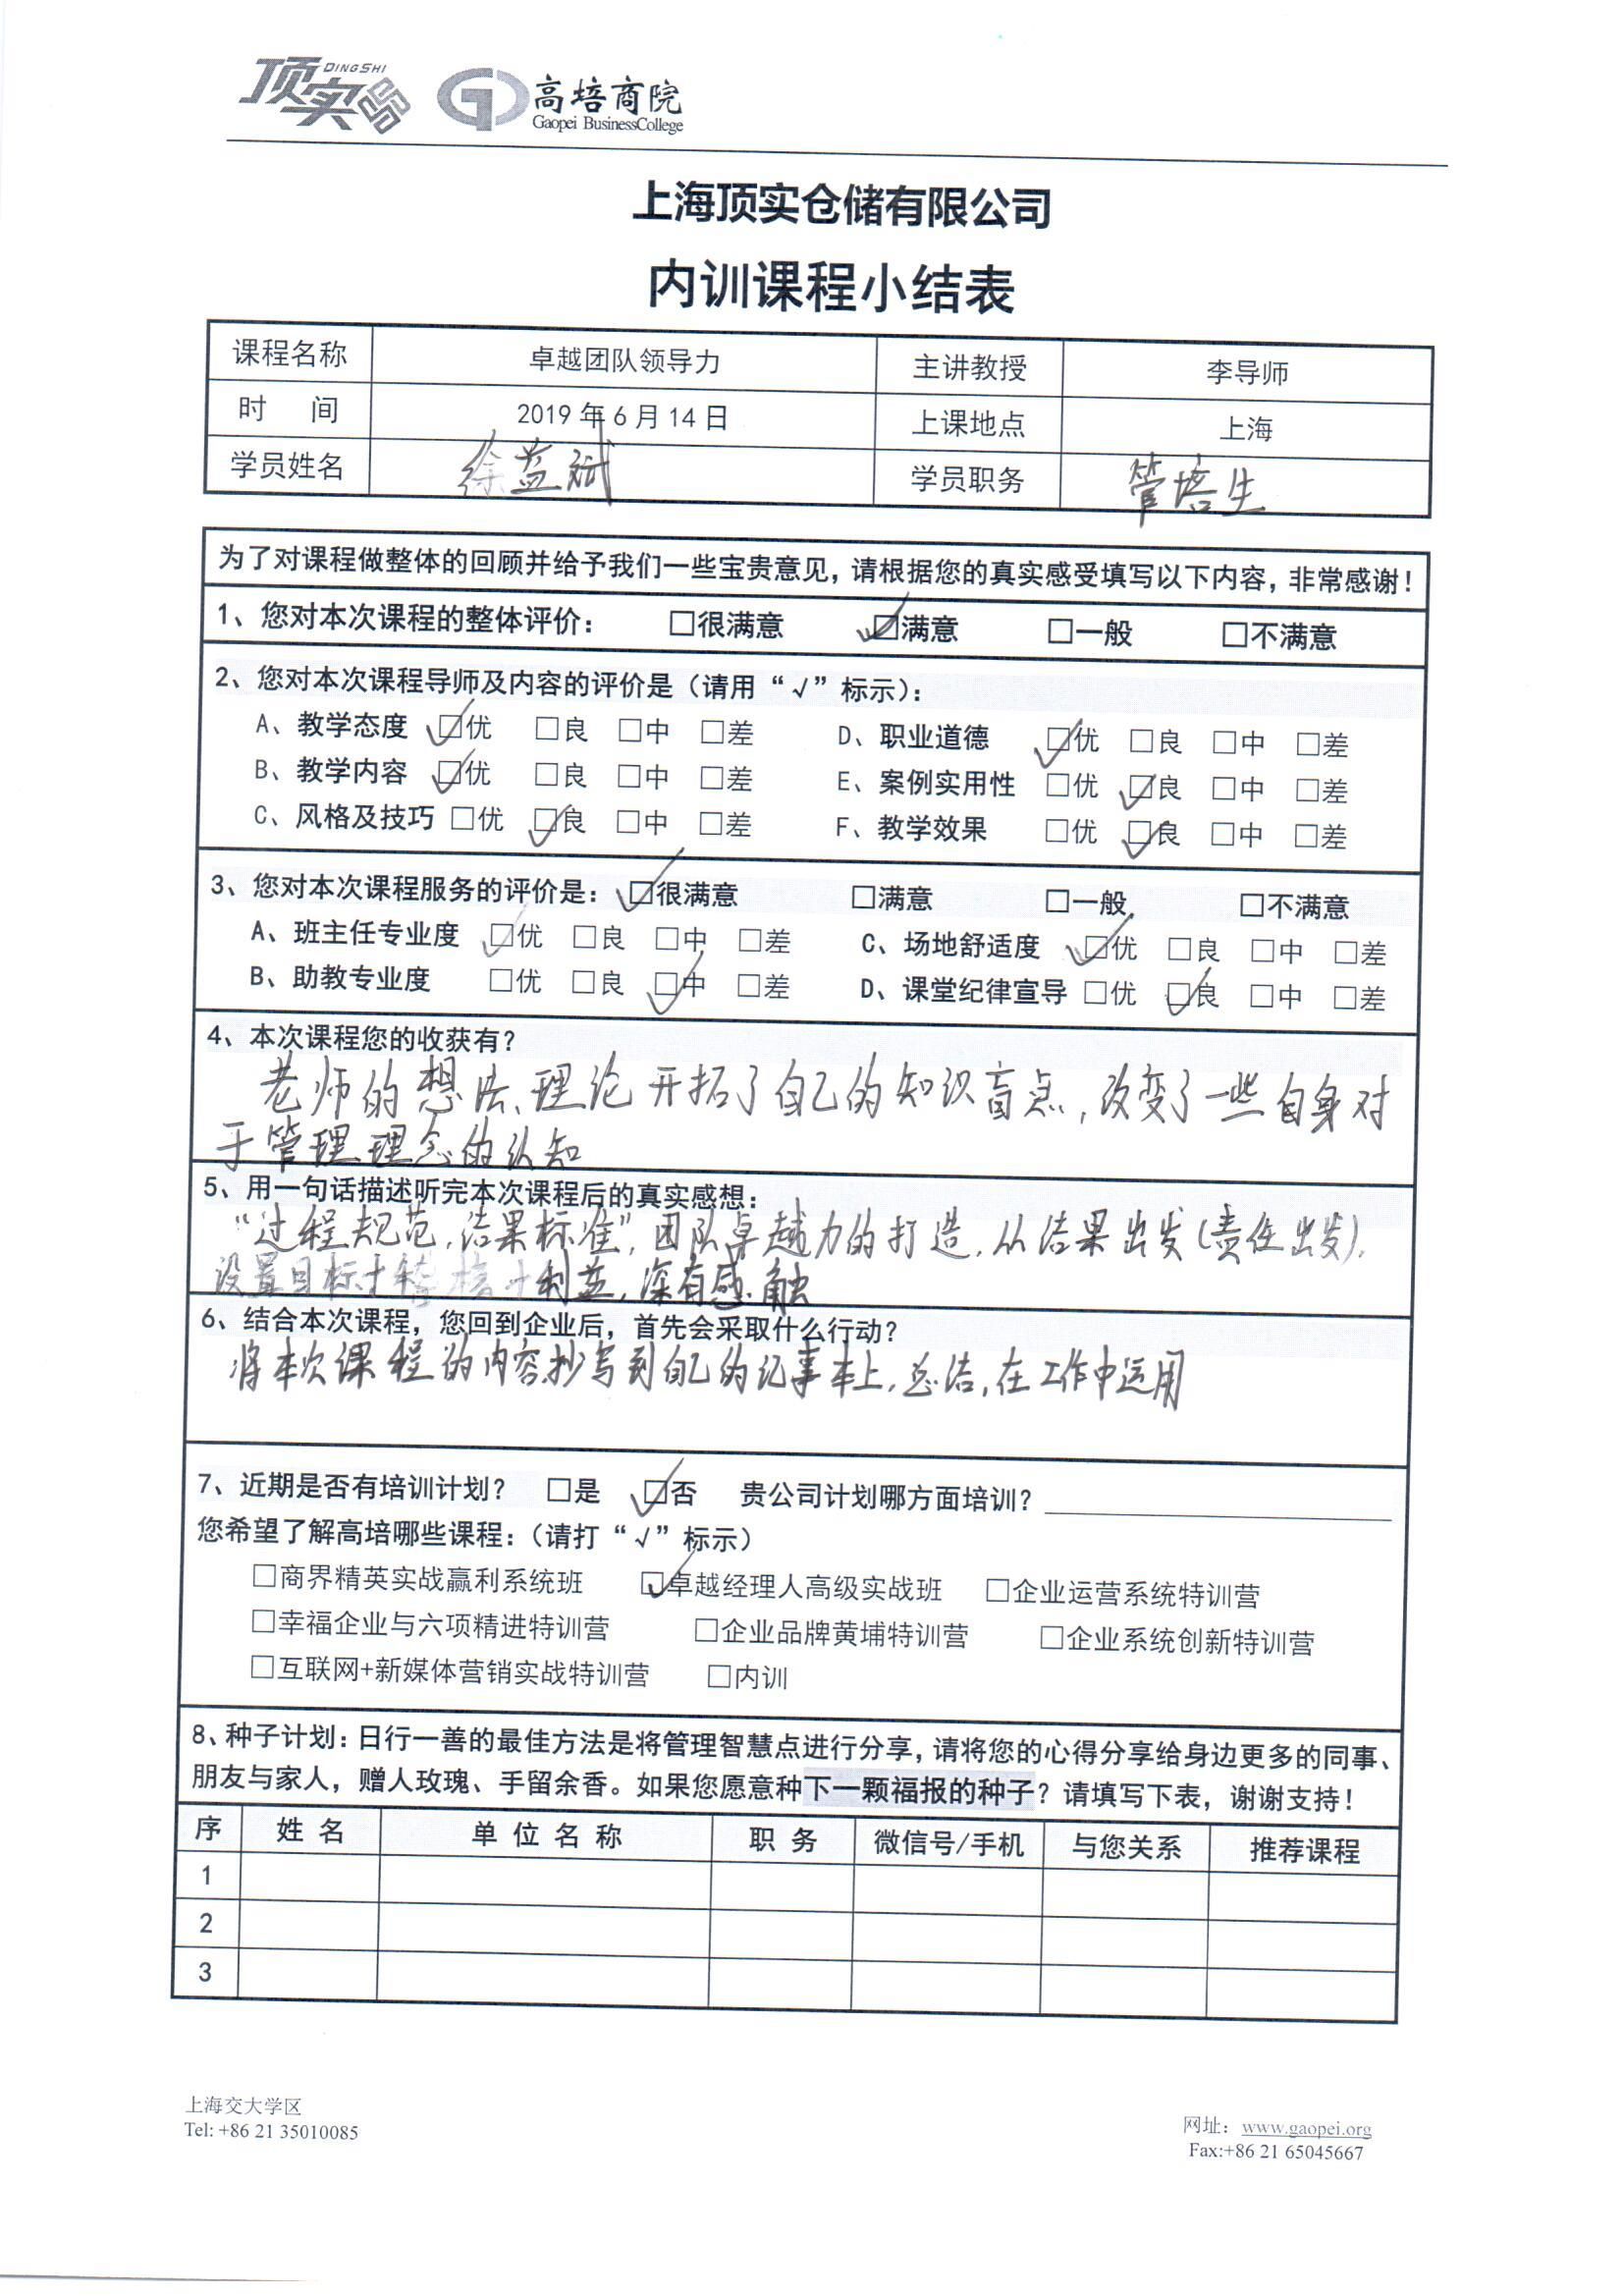 顶实 DINGSHI
高培商院
Gaopei BusinessCollege
上海顶实仓储有限公司
内训课程小结表
课程名称 卓越团队领导力 主讲教授 李导师
时 间 2019年6月14日 上课地点 上海
学员姓名 徐益斌 学员职务 管培生
为了对课程做整体的回顾并给予我们一些宝贵意见，请根据您的真实感受填写以下内容，非常感谢！
1、您对本次课程的整体评价： □很满意 ☑满意 □一般 □不满意
2、您对本次课程导师及内容的评价是（请用“√”标示）：
A、教学态度 ☑优 □良 □中 □差 D、职业道德 ☑优 □良 □中 □差
B、教学内容 ☑优 □良 □中 □差 E、案例实用性 □优 ☑良 □中 □差
C、风格及技巧 □优 ☑良 □中 □差 F、教学效果 □优 ☑良 □中 □差
3、您对本次课程服务的评价是： ☑很满意 □满意 □一般 □不满意
A、班主任专业度 ☑优 □良 □中 □差 C、场地舒适度 ☑优 □良 □中 □差
B、助教专业度 □优 □良 ☑中 □差 D、课堂纪律宣导 □优 ☑良 □中 □差
4、本次课程您的收获有？
老师的想法、理论开拓了自己的知识盲点，改变了一些自身对
于管理理念的认知
5、用一句话描述听完本次课程后的真实感想：
“过程规范，结果标准”，团队卓越力的打造，从结果出发（责任出发），
设置目标+ +利益，深有感触
6、结合本次课程，您回到企业后，首先会采取什么行动？
将本次课程的内容抄写到自己的记事本上，总结，在工作中运用
7、近期是否有培训计划？ □是 ☑否 贵公司计划哪方面培训？
您希望了解高培哪些课程：（请打“√”标示）
□商界精英实战赢利系统班 ☑卓越经理人高级实战班 □企业运营系统特训营
□幸福企业与六项精进特训营 □企业品牌黄埔特训营 □企业系统创新特训营
□互联网+新媒体营销实战特训营 □内训
8、种子计划：日行一善的最佳方法是将管理智慧点进行分享，请将您的心得分享给身边更多的同事、
朋友与家人，赠人玫瑰、手留余香。如果您愿意种下一颗福报的种子？请填写下表，谢谢支持！
序 姓 名 单 位 名 称 职 务 微信号/手机 与您关系 推荐课程
1
2
3
上海交大学区
Tel: +86 21 35010085
网址：www.gaopei.org
Fax:+86 21 65045667